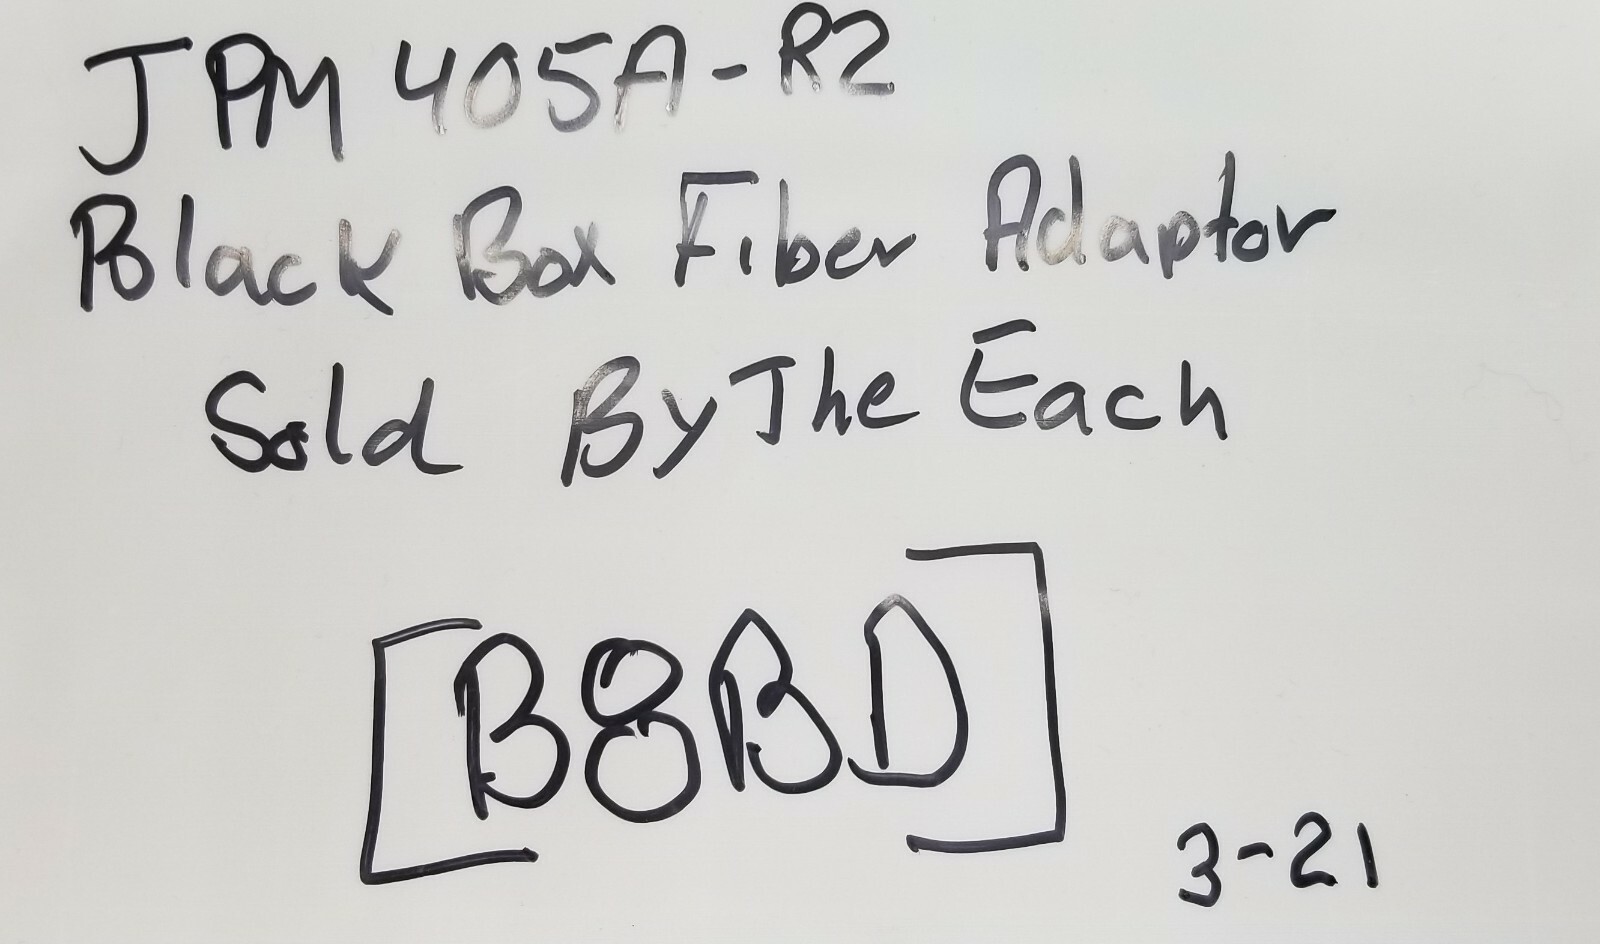 JPM 405A-R2
Black Box Fiber Adaptor
Sold By The Each
[B8BD]
3-21